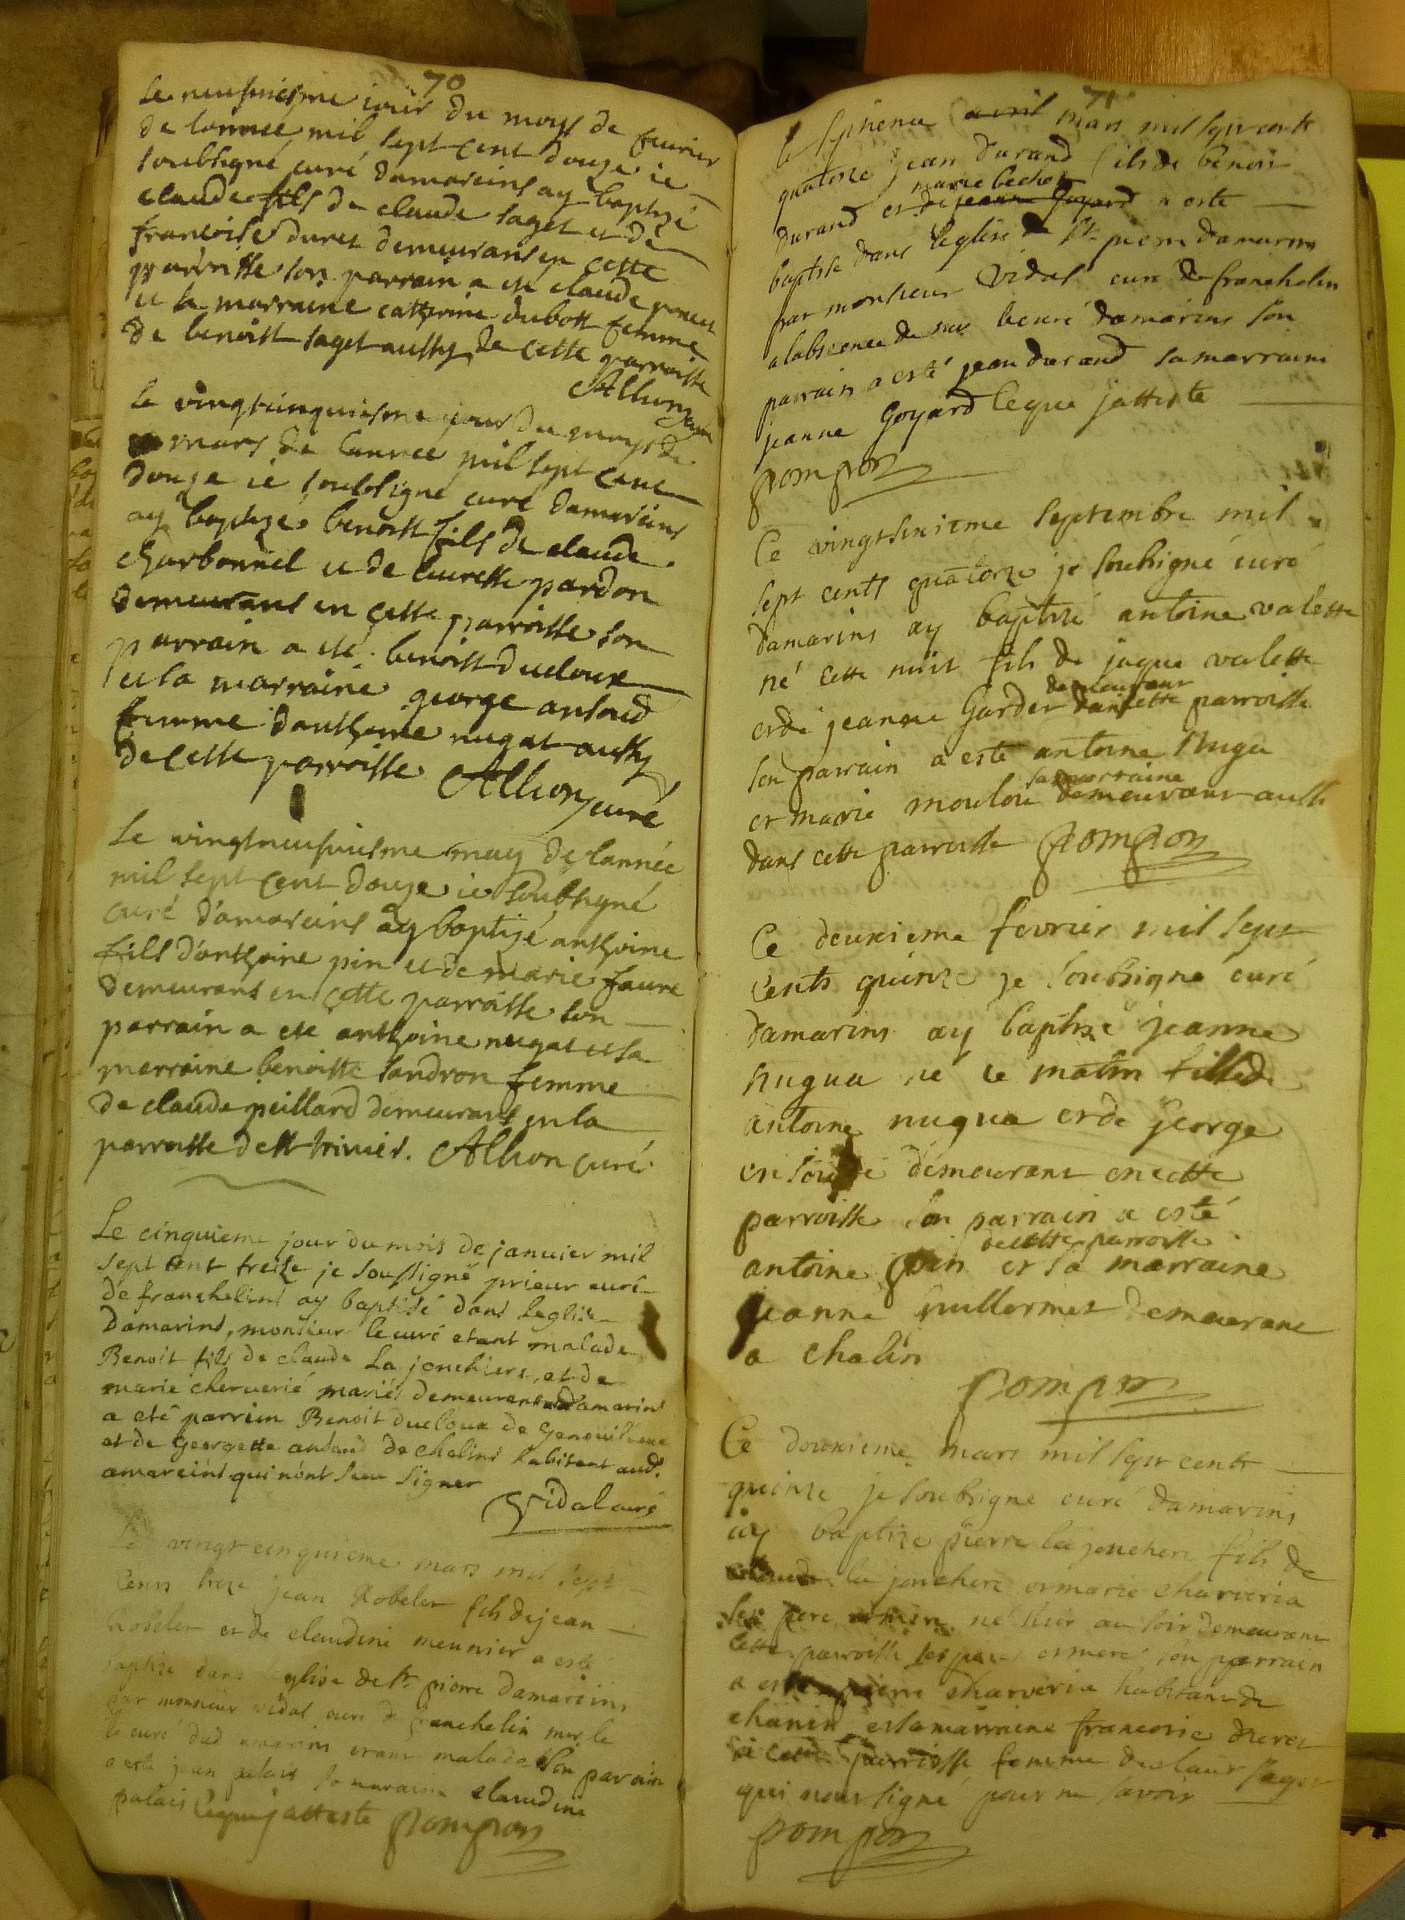 70
Le neufviesme jour du moys de fevrier
de lannee mil sept cent douze ie
soubsigné curé damareins ay baptizé
claude fils de claude saget et de
francoise duret demeurans en cette
parroisse son parrain a esté claude poncet
et la marraine catherine dubost femme
de benoist saget aussy de cette parroisse
Alhon curé
Le vingtcinquiesme jour du moys de
mars de lannée mil sept cent
douze ie soubsigné curé damareins
ay baptizé benoist fils de claude
charbonnel et de laurette pardon
demeurans en cette parroisse son
parrain a esté benoist ducloux
et la marraine george ansoud
femme danthoine nugat aussy
de cette parroisse Alhon curé
Le vingtneufviesme may de lannée
mil sept cent douze ie soubsigné
curé d'amareins ay baptizé anthoine
fils d'anthoine pin et de marie faure
demeurans en cette parroisse son
parrain a ete anthoine nugat et sa
marraine benoitte sandron femme
de claude peillard demeurans en la
parroisse de st trivier. Alhon curé
Le cinquieme jour du mois de janvier mil
sept cent treize je soussigné prieur curé
de franchelins ay baptisé dans leglise
Damarins, monsieur le curé etant malade
Benoit fils de claude La jonchere, et de
marie cherverié mariés demeurent a Damarins
a eté parrein Benoit ducloux de Genouilleux
et de Georgette ansoud de chalins habitent aud.
amareins qui n'ont sceu signer
Vidal curé
Le vingt cinquieme mars mil sept
cents treze jean Robelet fils de jean
Robelet et de claudine meunier a esté
baptise dans leglise de st pierre damareins
par monsieur vidal curé de franchelin moy le
le curé dud amarins etant malade son parain
a esté jean palais sa maraine claudine
palais Cequej atteste pompon
71
Le septieme avril mars mil sept cents
quatorze jean durand fils de benoit
marie bechet
durand et de jeanne Goyard a esté
baptise dans leglise de st pierre damarins
par monsieur Vidal curé de franchelin
a labscence de moy le curé damarins son
parrain a esté jean durand sa marraine
jeanne Goyard Ceque j'atteste
pompon
Ce vingtsixieme septembre mil
sept cents quatorze je soubsigné curé
damarins ay baptisé antoine valette
né cette nuit fils de jaque valette
demeurant
et de jeanne Garder dans cette parroisse
son parrain a esté antoine Nuga
sa marraine
et marie moulou demeurant aussi
dans cette parroisse pompon
Ce deuxieme fevrier mil sept
cents quinze je soubsigné curé
damarins ay baptisé jeanne
nugua né ce matin fille de
antoine nugua et de George
demeurant en cette
parroisse son parrain a esté
de cette parroisse
antoine pin et sa marraine
jeanne Guillermet demeurant
a chalin
pompon
Ce douxieme mars mil sept cents
quinze je soubsigné curé damarins
ay baptize pierre la jonchere fils de
claude la jonchere et marie charveria
ses pere et mere né hier au soir demeurant
cette parroisse ses pere et mere son parrain
a esté pierre charveria habitant de
chanein et sa marraine francoise duret
de cette parroisse femme de claude saget
qui nont signé pour ne savoir
pompon